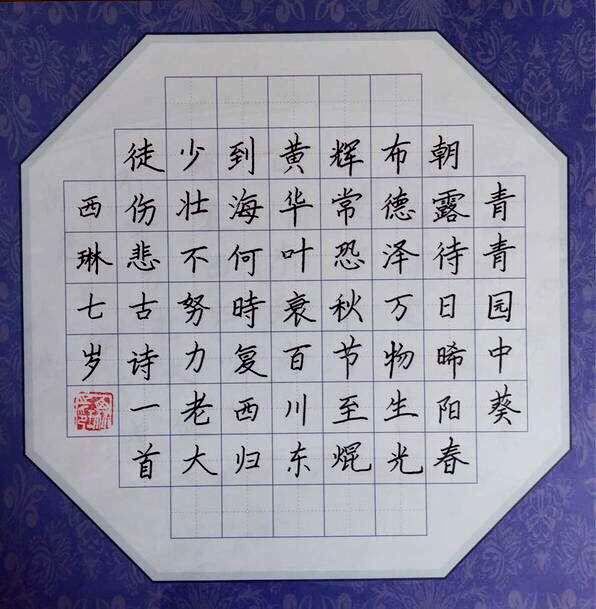 青青园中葵
朝露待日晞阳春
布德泽万物生光
辉常恐秋节至焜
黄华叶衰百川东
到海何時复西归
少壮不努力老大
徒伤悲古诗一首
西琳七岁